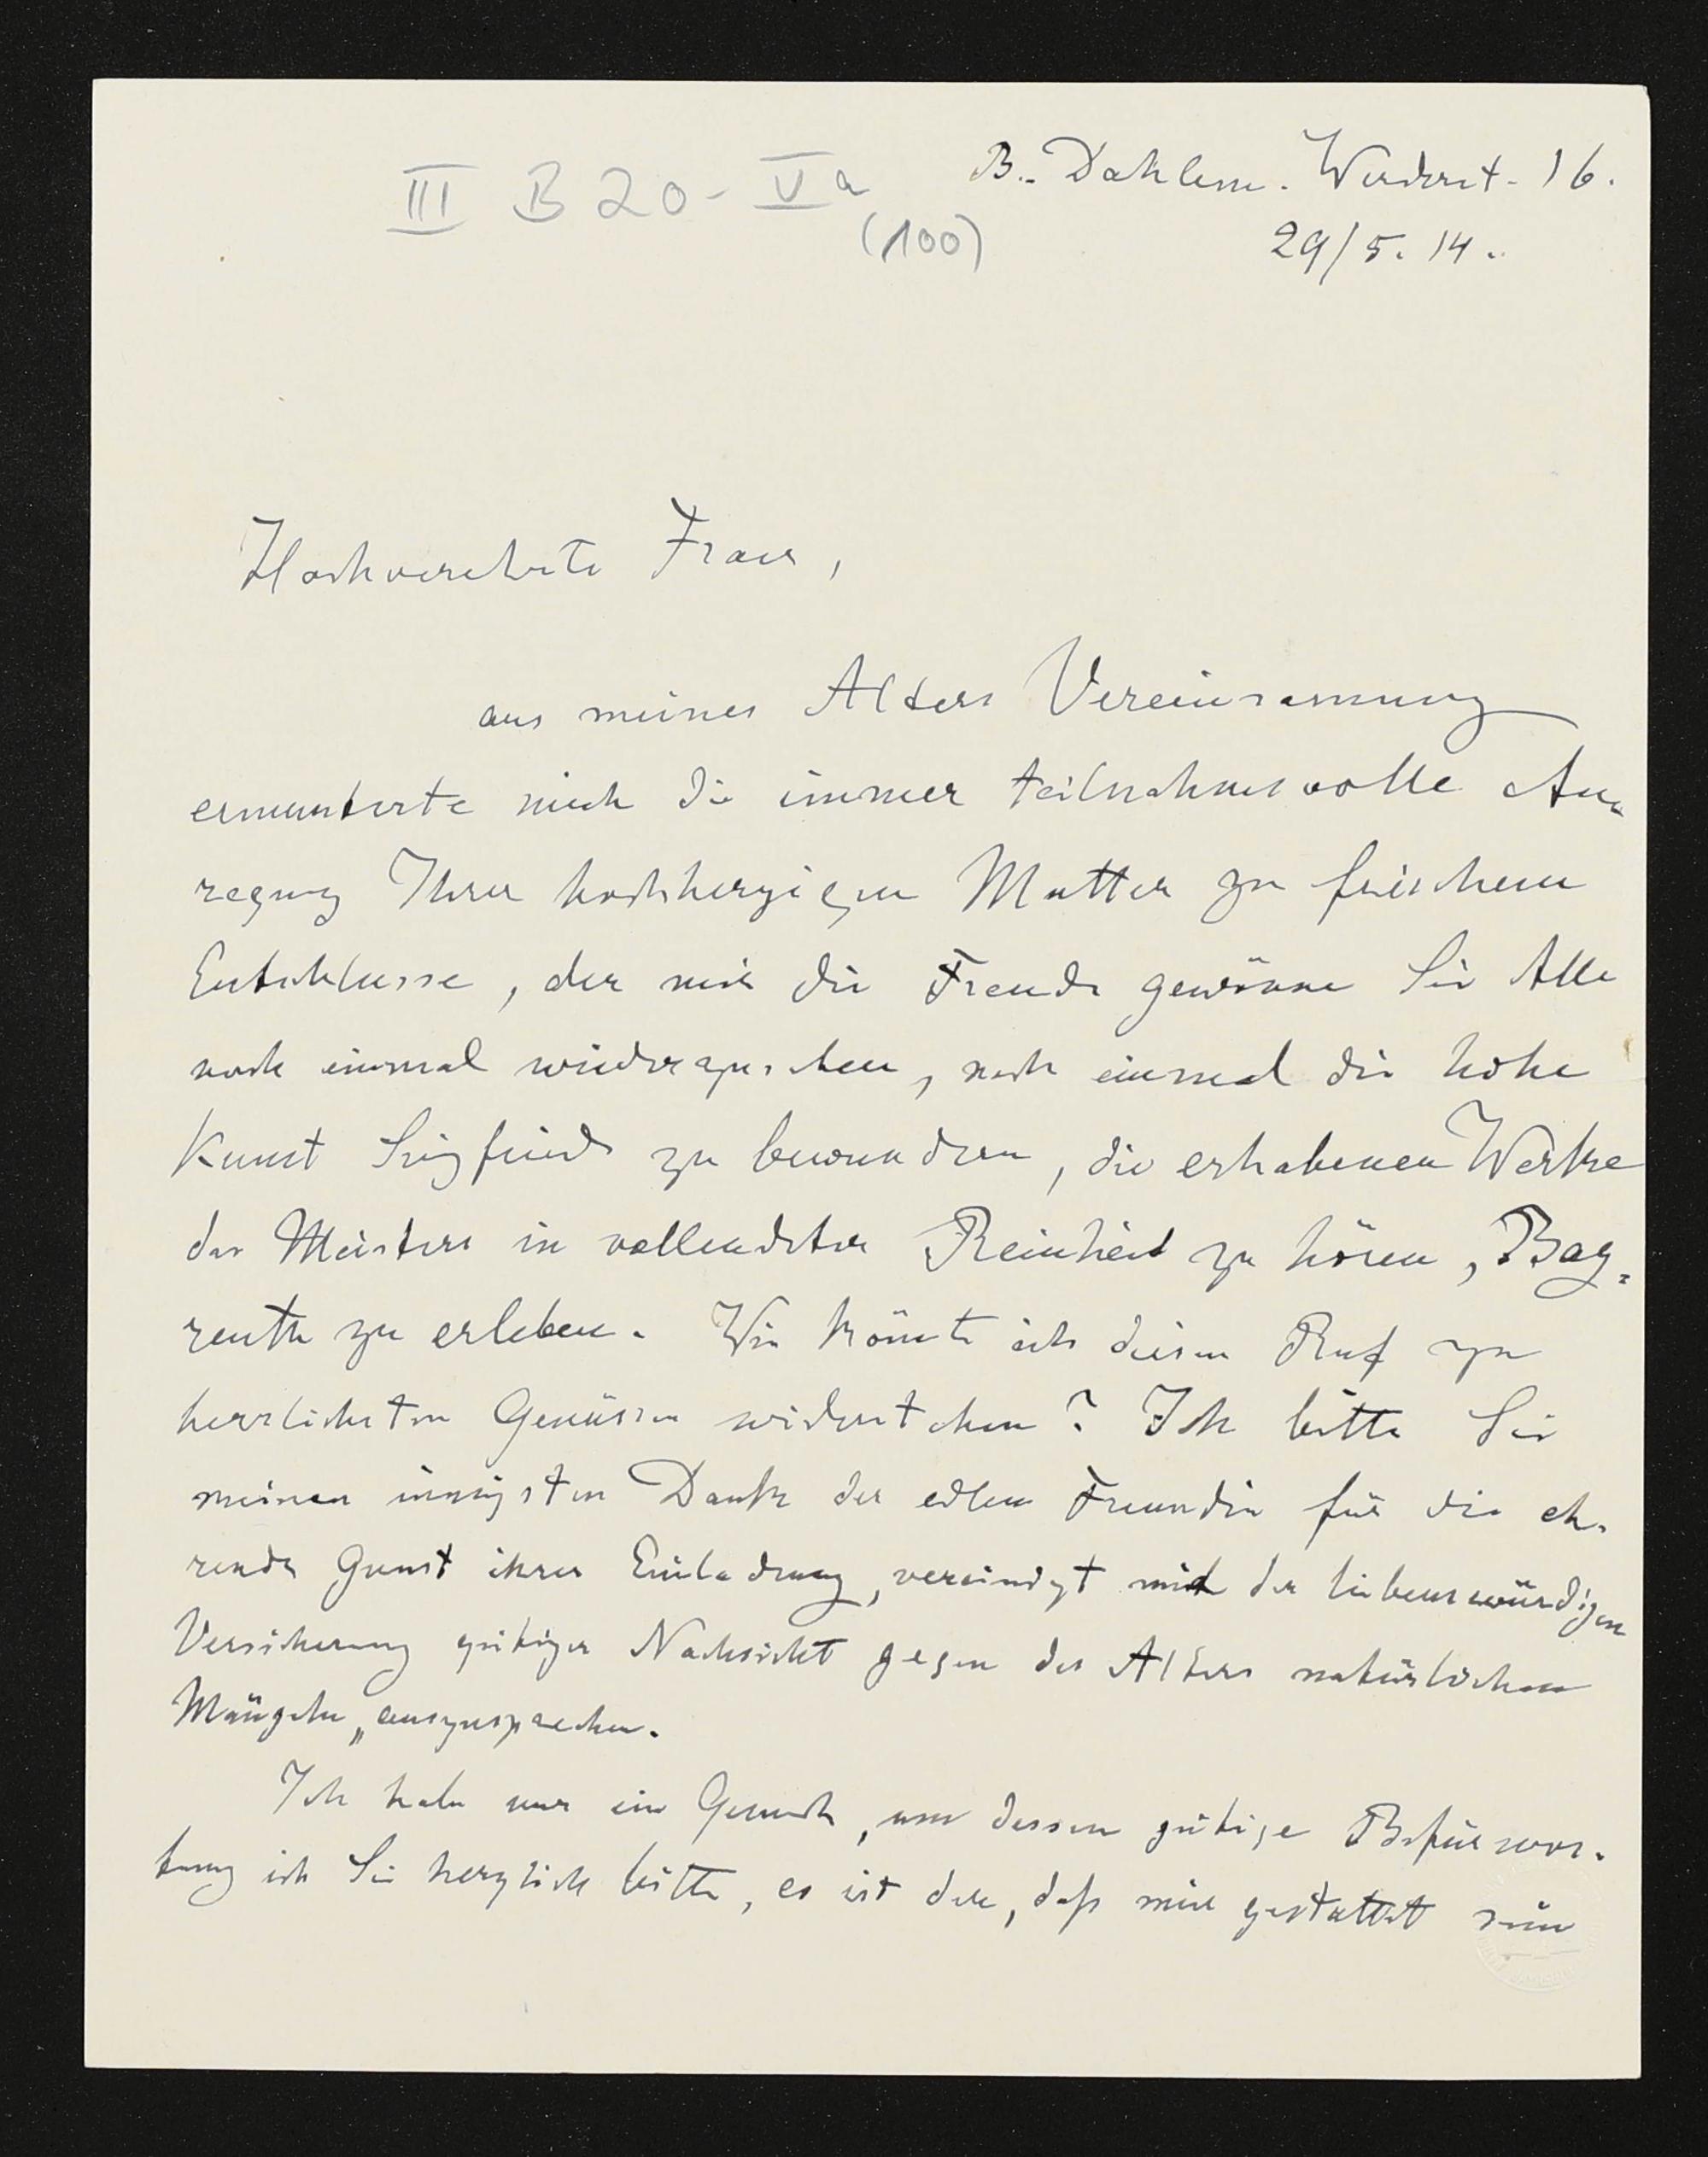 III B 20 - Va
(100)
B.. Dahlem. Werderst. 16.
29/5. 14.
Hochverehrte Frau,
aus meines Alters Vereinsamung
ermunterte mich die immer teilnahmsvolle An-
regung Ihrer hochherzigen Mutter zu frischem
Entschlusse, der mir die Freude gewönne Sie Alle
noch einmal wiederzusehen, noch einmal die hohe
Kunst Siegfrieds zu bewundern, die erhabenen Werke
des Meisters in vollendeter Reinheit zu hören, Bay-
reuth zu erleben. Wie könnte ich diesem Ruf zu
herrlichsten Genüssen widerstehen? Ich bitte Sie
meinen innigsten Dank der edlen Freundin für die eh-
rende Gunst ihrer Einladung, vereinigt mit der liebenswürdigen
Versicherung gütiger Nachsicht gegen des Alters natürlichen
Mängeln, auszusprechen.
Ich habe nur ein Gesuch, um dessen gütige Befürwor-
tung ich Sie herzlich bitte, es ist das, daß mir gestattet sein